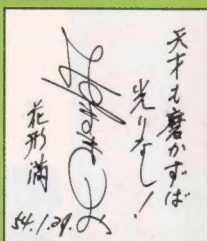 天才も磨かずば
光りなし!
花形満
54.1.29.